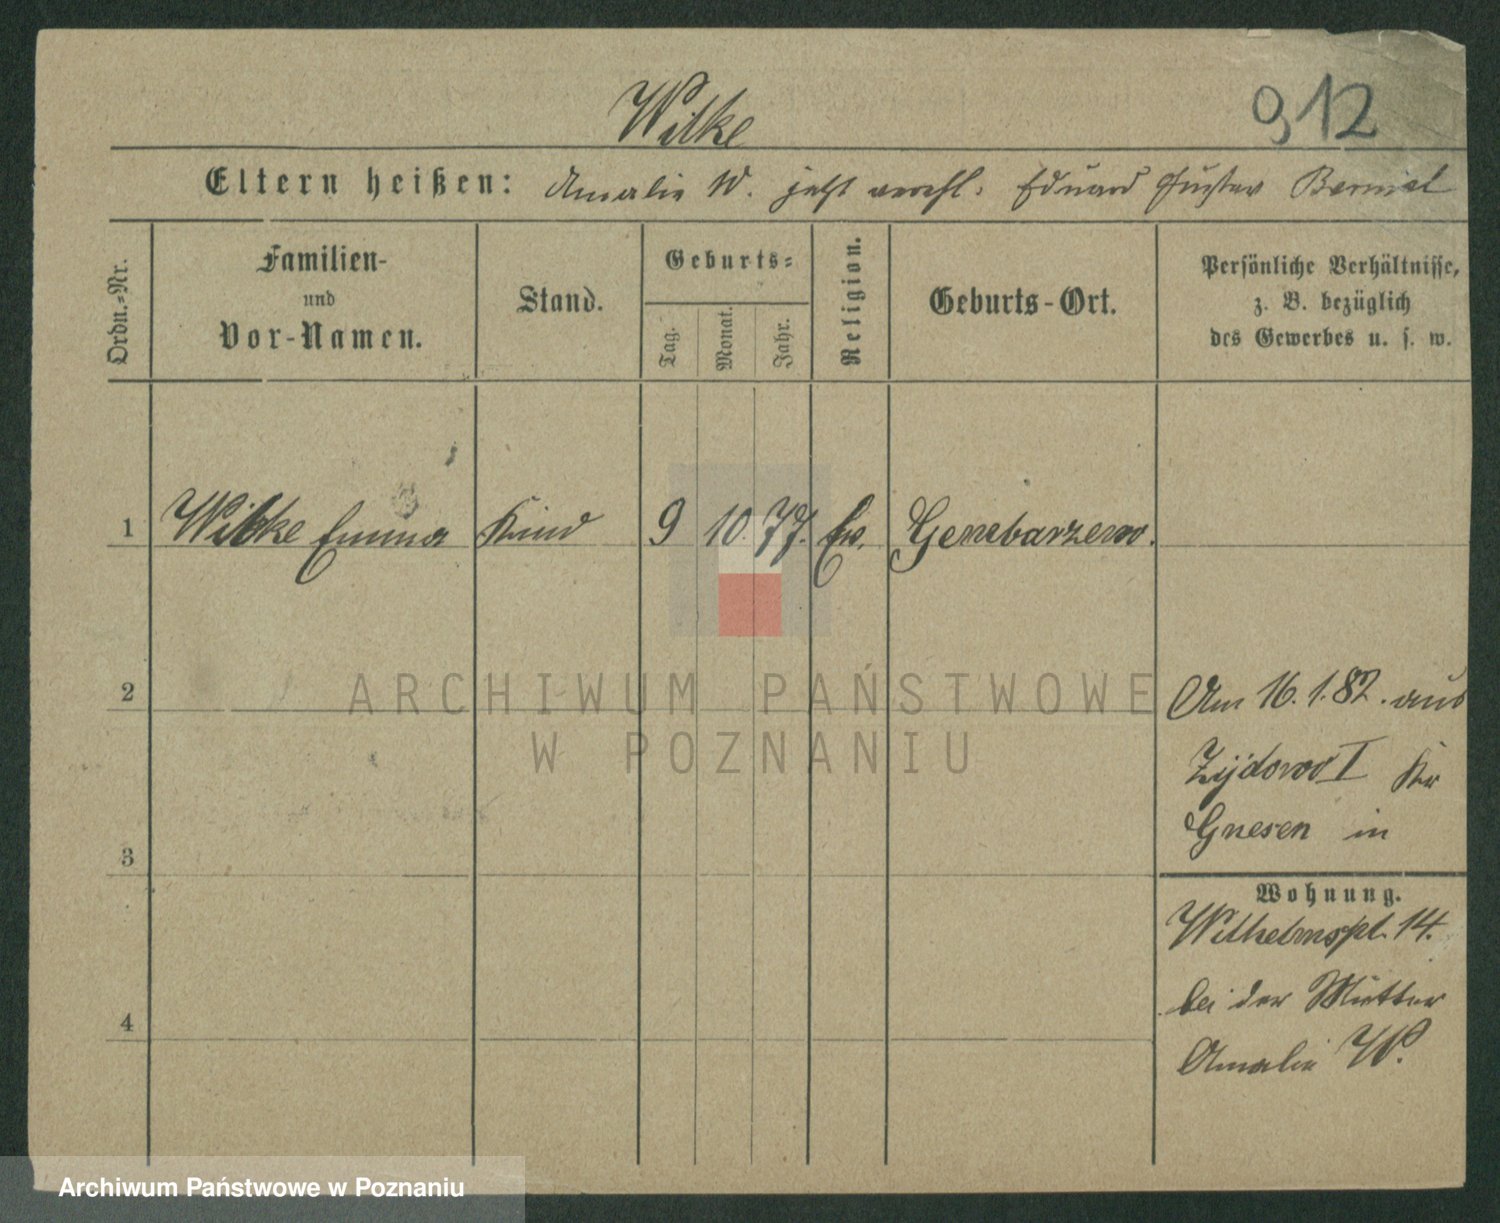 Wilke
912
Eltern heißen: Amalie W. jetzt verehl. Eduard Gustav
Ordn.-Nr.
Familien-
und
Vor-Namen.
Stand.
Geburts-
Tag.
Monat.
Jahr.
Religion.
Geburts-Ort.
Persönliche Verhältnisse,
z. B. bezüglich
des Gewerbes u. s. w.
1 Wilke Emma Kind 9 10. 77. Ev. Gembarzewo.
2
3
4
Am 16. 1. 82. aus
Zydowo I Kr
Gnesen in
Wohnung.
Wilhelmspl. 14.
bei der Mutter
Amalie W.
ARCHIWUM PAŃSTWOWE
W POZNANIU
Archiwum Państwowe w Poznaniu